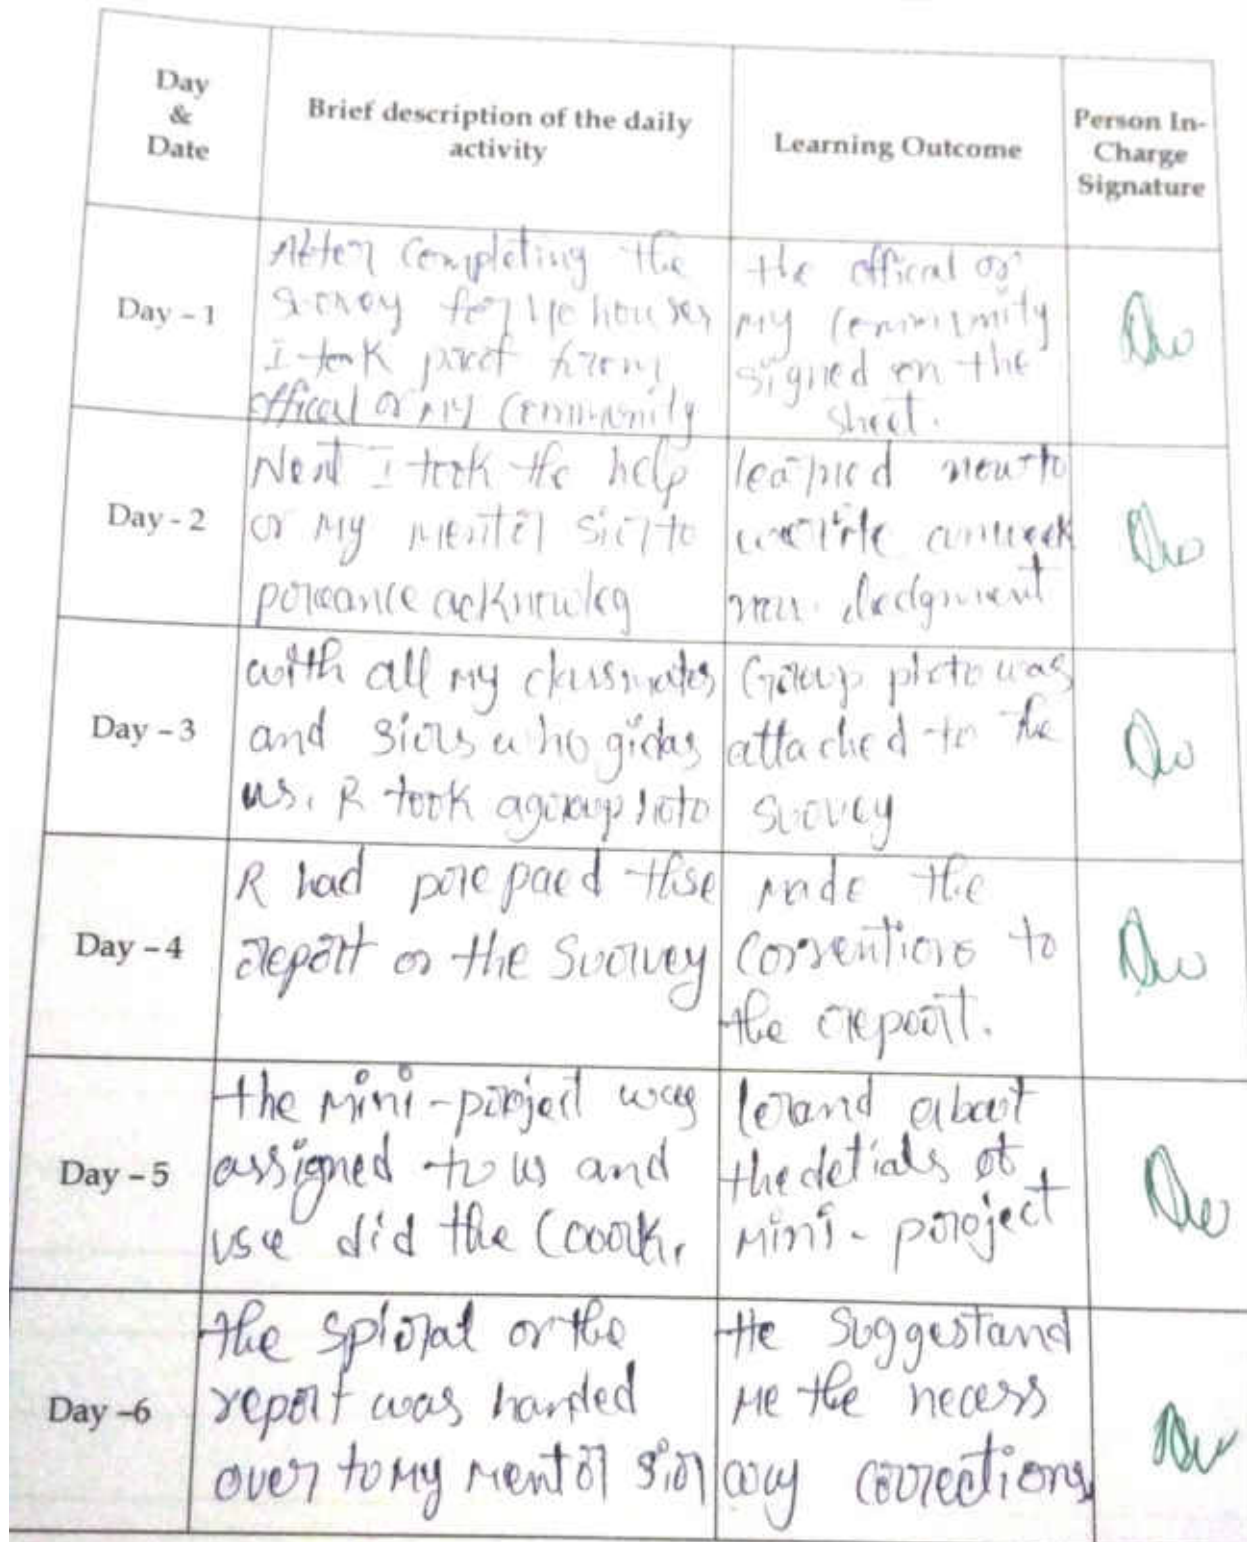 Day
&
Date
Brief description of the daily
activity
Learning Outcome
Person In-
Charge
Signature
Day - 1
After Completing the
Survey for 40 houses
I took from
offical of my Community
the offical of
my Community
signed on the
sheet.
Day - 2
Next I took the help
of my mentor sir to
acknowleg
new to
Day - 3
with all my classmates
and sirs who gides
us. I took a group photo
Group photo was
attached to the
survey
Day - 4
I had prepaed
report of the Survey
made the
to
the report.
Day - 5
the Mini-project was
assigned to us and
did the
about
the detials of
Mini- project
Day -6
the spiral of the
report was handed
over to my Mentor sir
He
me the necess
ary corrections